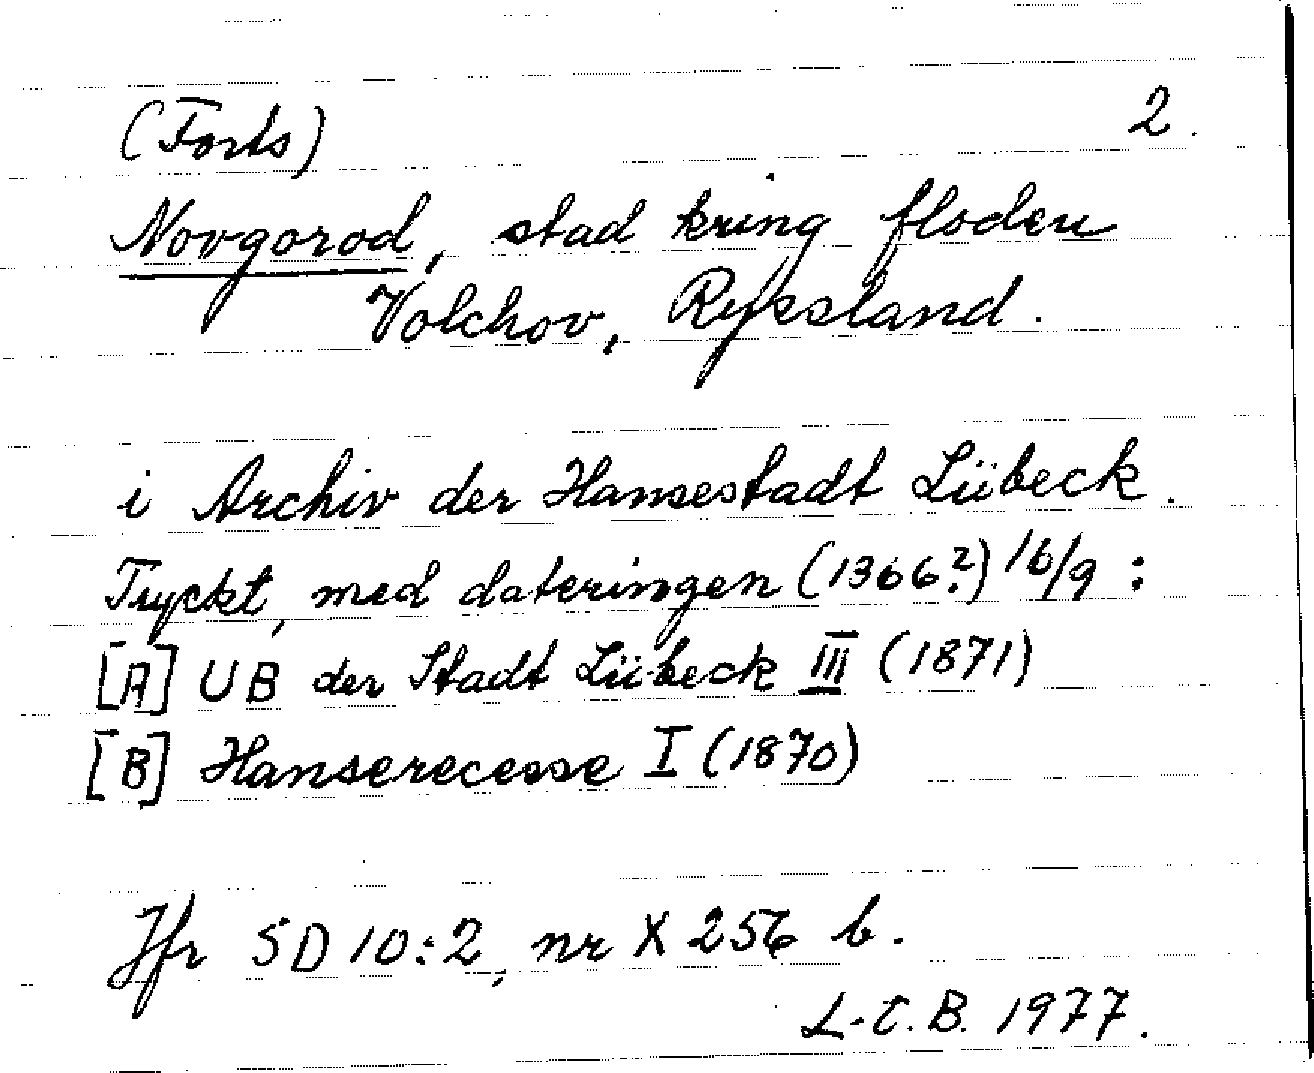 (Forts) 2.
Novgorod, stad kring floden
Volchov, Ryssland.
i Archiv der Hansestadt Lübeck.
Tryckt, med dateringen (1366?) 16/9 :
[A] UB der Stadt Lübeck III (1871)
[B] Hanserecesse I (1870)
Jfr SD 10:2, nr X 256 b.
L-C. B. 1977.